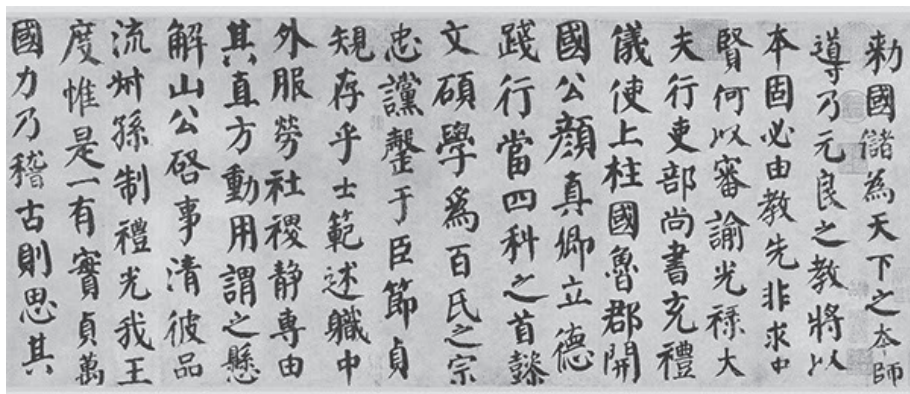 勑國儲為天下之本師
導乃元良之教將以
本固必由教先非求中
賢何以審諭光祿大
夫行吏部尚書充禮
儀使上柱國魯郡開
國公顏真卿立德
踐行當四科之首懿
文碩學為百氏之宗
忠讜罄于臣節貞
規存乎士範述職中
外服勞社稷靜專由
其直方動用謂之懸
解山公啓事清彼品
流叔孫制禮光我王
度惟是一有實貞萬
國力乃稽古則思其